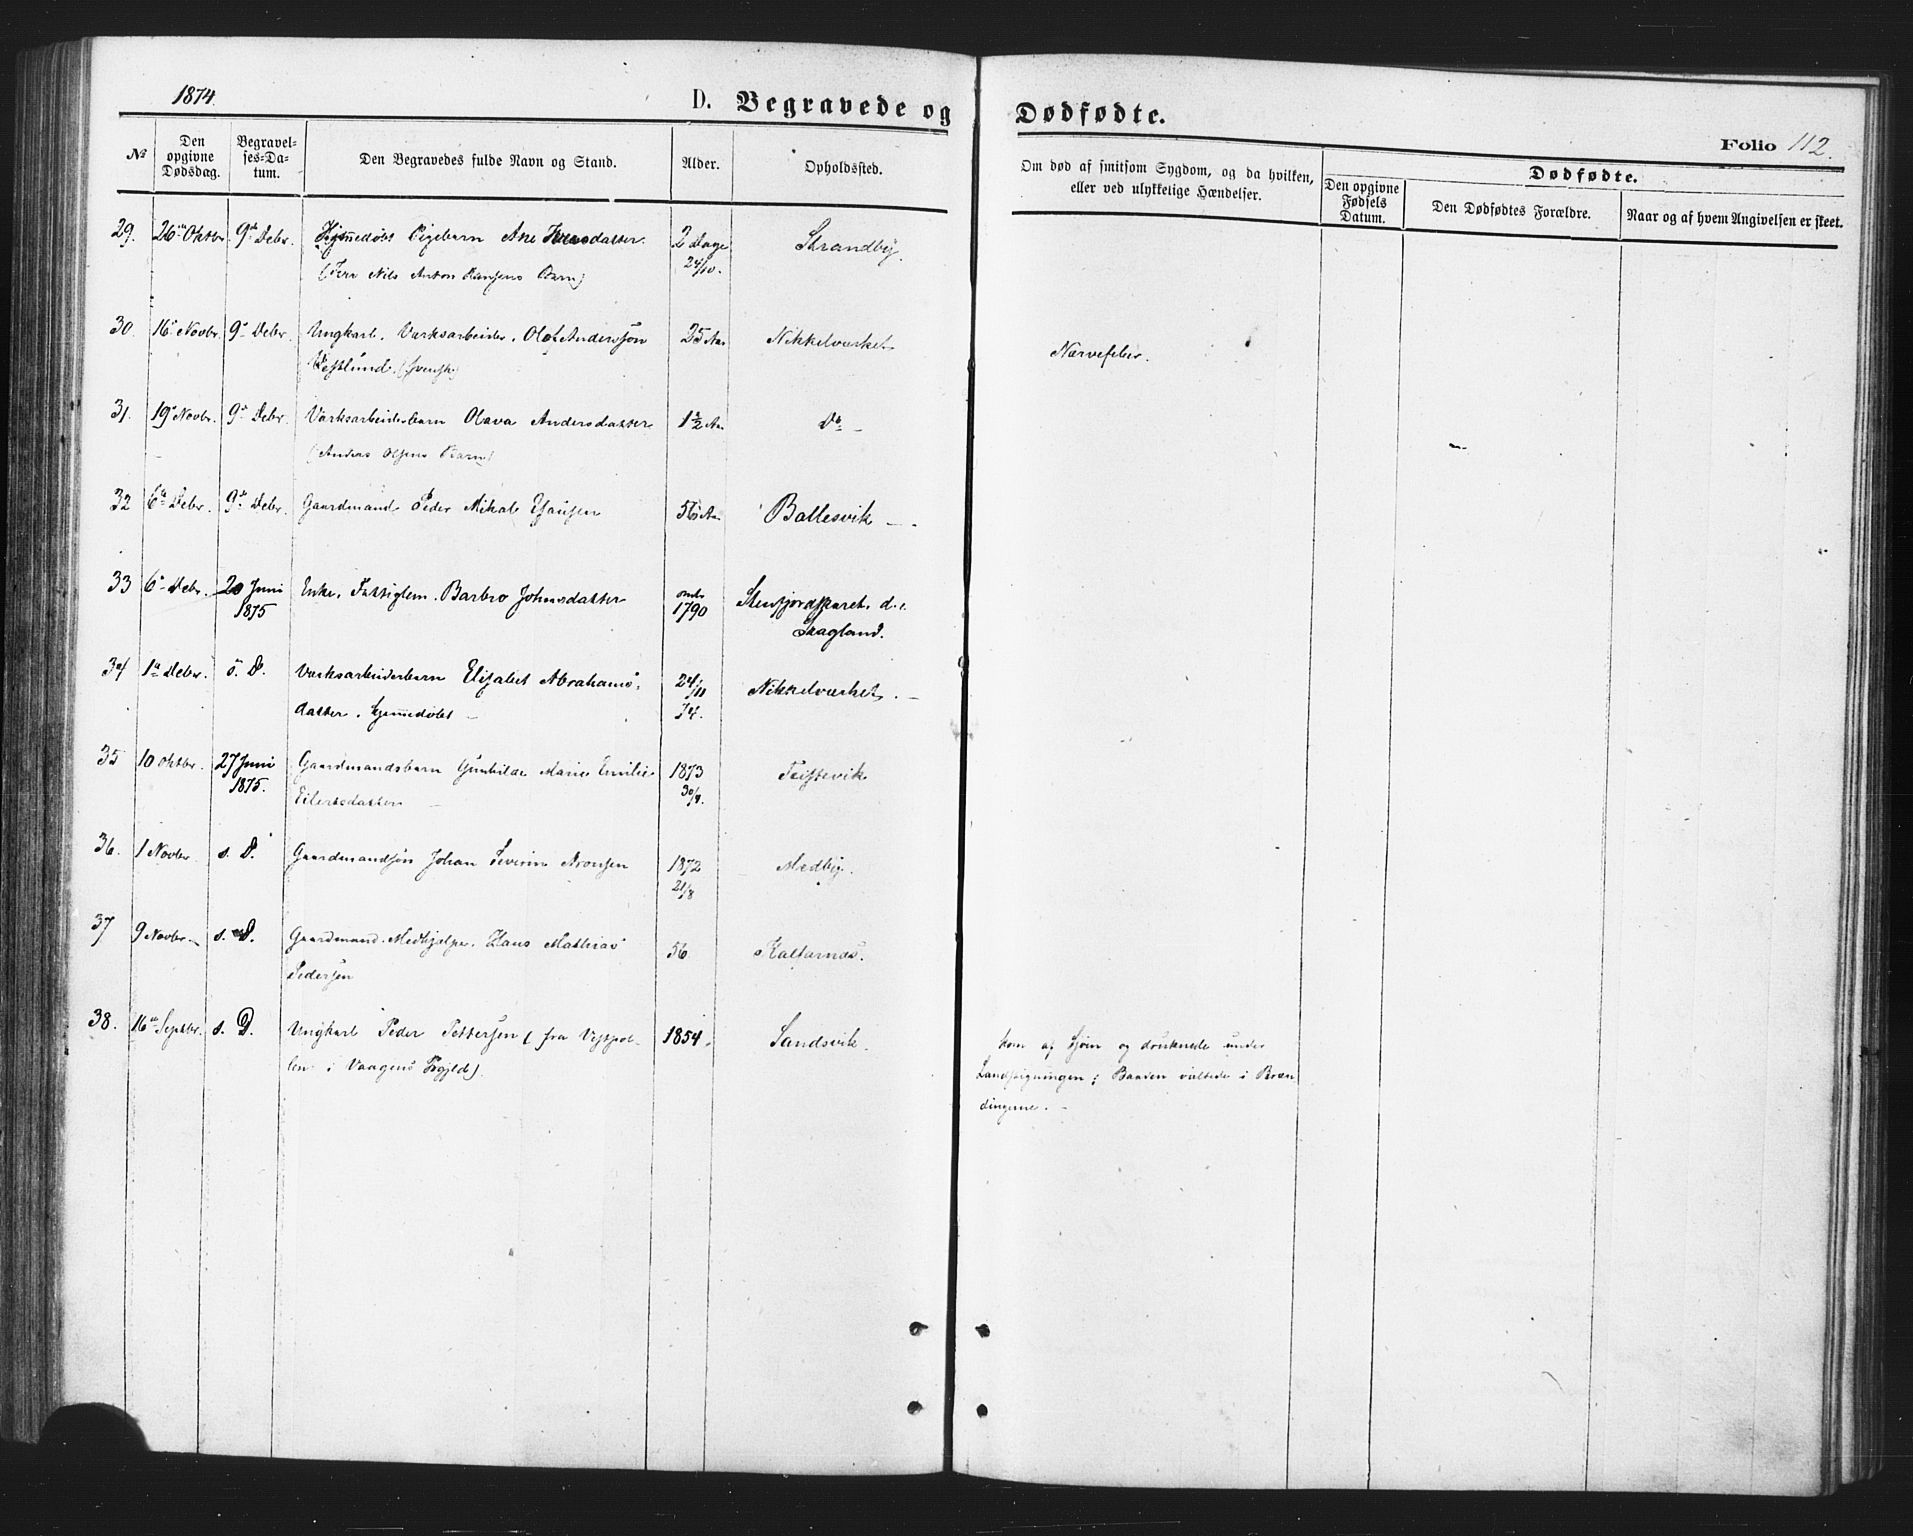 1874.
D. Begravede og Dødfødte.
Folio 112.
No
Den opgivne Dødsdag.
Begravelses-Datum.
Den Begravedes fulde Navn og Stand.
Alder.
Opholdssted.
Om død af smitsom Sygdom, og da hvilken,
eller ved ulykkelige Hændelser.
Dødfødte.
Den opgivne Fødsels Datum.
Den Dødfødtes Forældre.
Naar og af hvem Angivelsen er skeet.
29. 26de Oktbr. 9de Debr. Hjemmedøbt Pigebarn Ane 2 Dage Strandby.
Nils Anton Hansens Barn) 24/10.
30. 16 Novbr. 9de Debr. Ungkarl, Værksarbeider, Olof Andersson 25 Aar Nikkelværket Nervefeber.
Vestlund. (svensk)
31. 19 Novbr. 9de Debr. Værksarbeiderbarn Olava Andersdatter 1½ Aar Do —
(Anders Olsens Barn)
32 6te Debr. 9de Debr. Gaardmand Peder Mikal Hansen 56 Aar Ballesvik —
33 6 Debr. 20 Juni Enke, Fattiglem. Barbro Johnsdatter 1790 Stenfjordskaret.
1875 Skagland.
34 1ste Debr. s. D. Værksarbeiderbarn Elisabet Abrahams- 24/11 Nikkelværket. —
datter. Hjemmedøbt — 74.
35 10 Oktbr. 27 Juni Gaardmandsbarn Gunhilde Marie Emilie 1873 Teistevik
1875. Eilertsdatter — 30/9.
36. 1 Novbr. s. D. Gaardmandsøn Johan Severin Aronsen 1872 Medby.
21/8
37 9 Novbr. s. D. Gaardmand. Medhjælper. Hans Mathias 56 Kaldarnes.
Pedersen
38. 16de Septbr. s. D. Ungkarl Peder Pettersen (fra Vestpol- 1854. Sandsvik. kom af Sjøen og druknede under
len i Vaagens Prgjld). Landsigningen; Baaden væltede i Bræn
dingerne. —